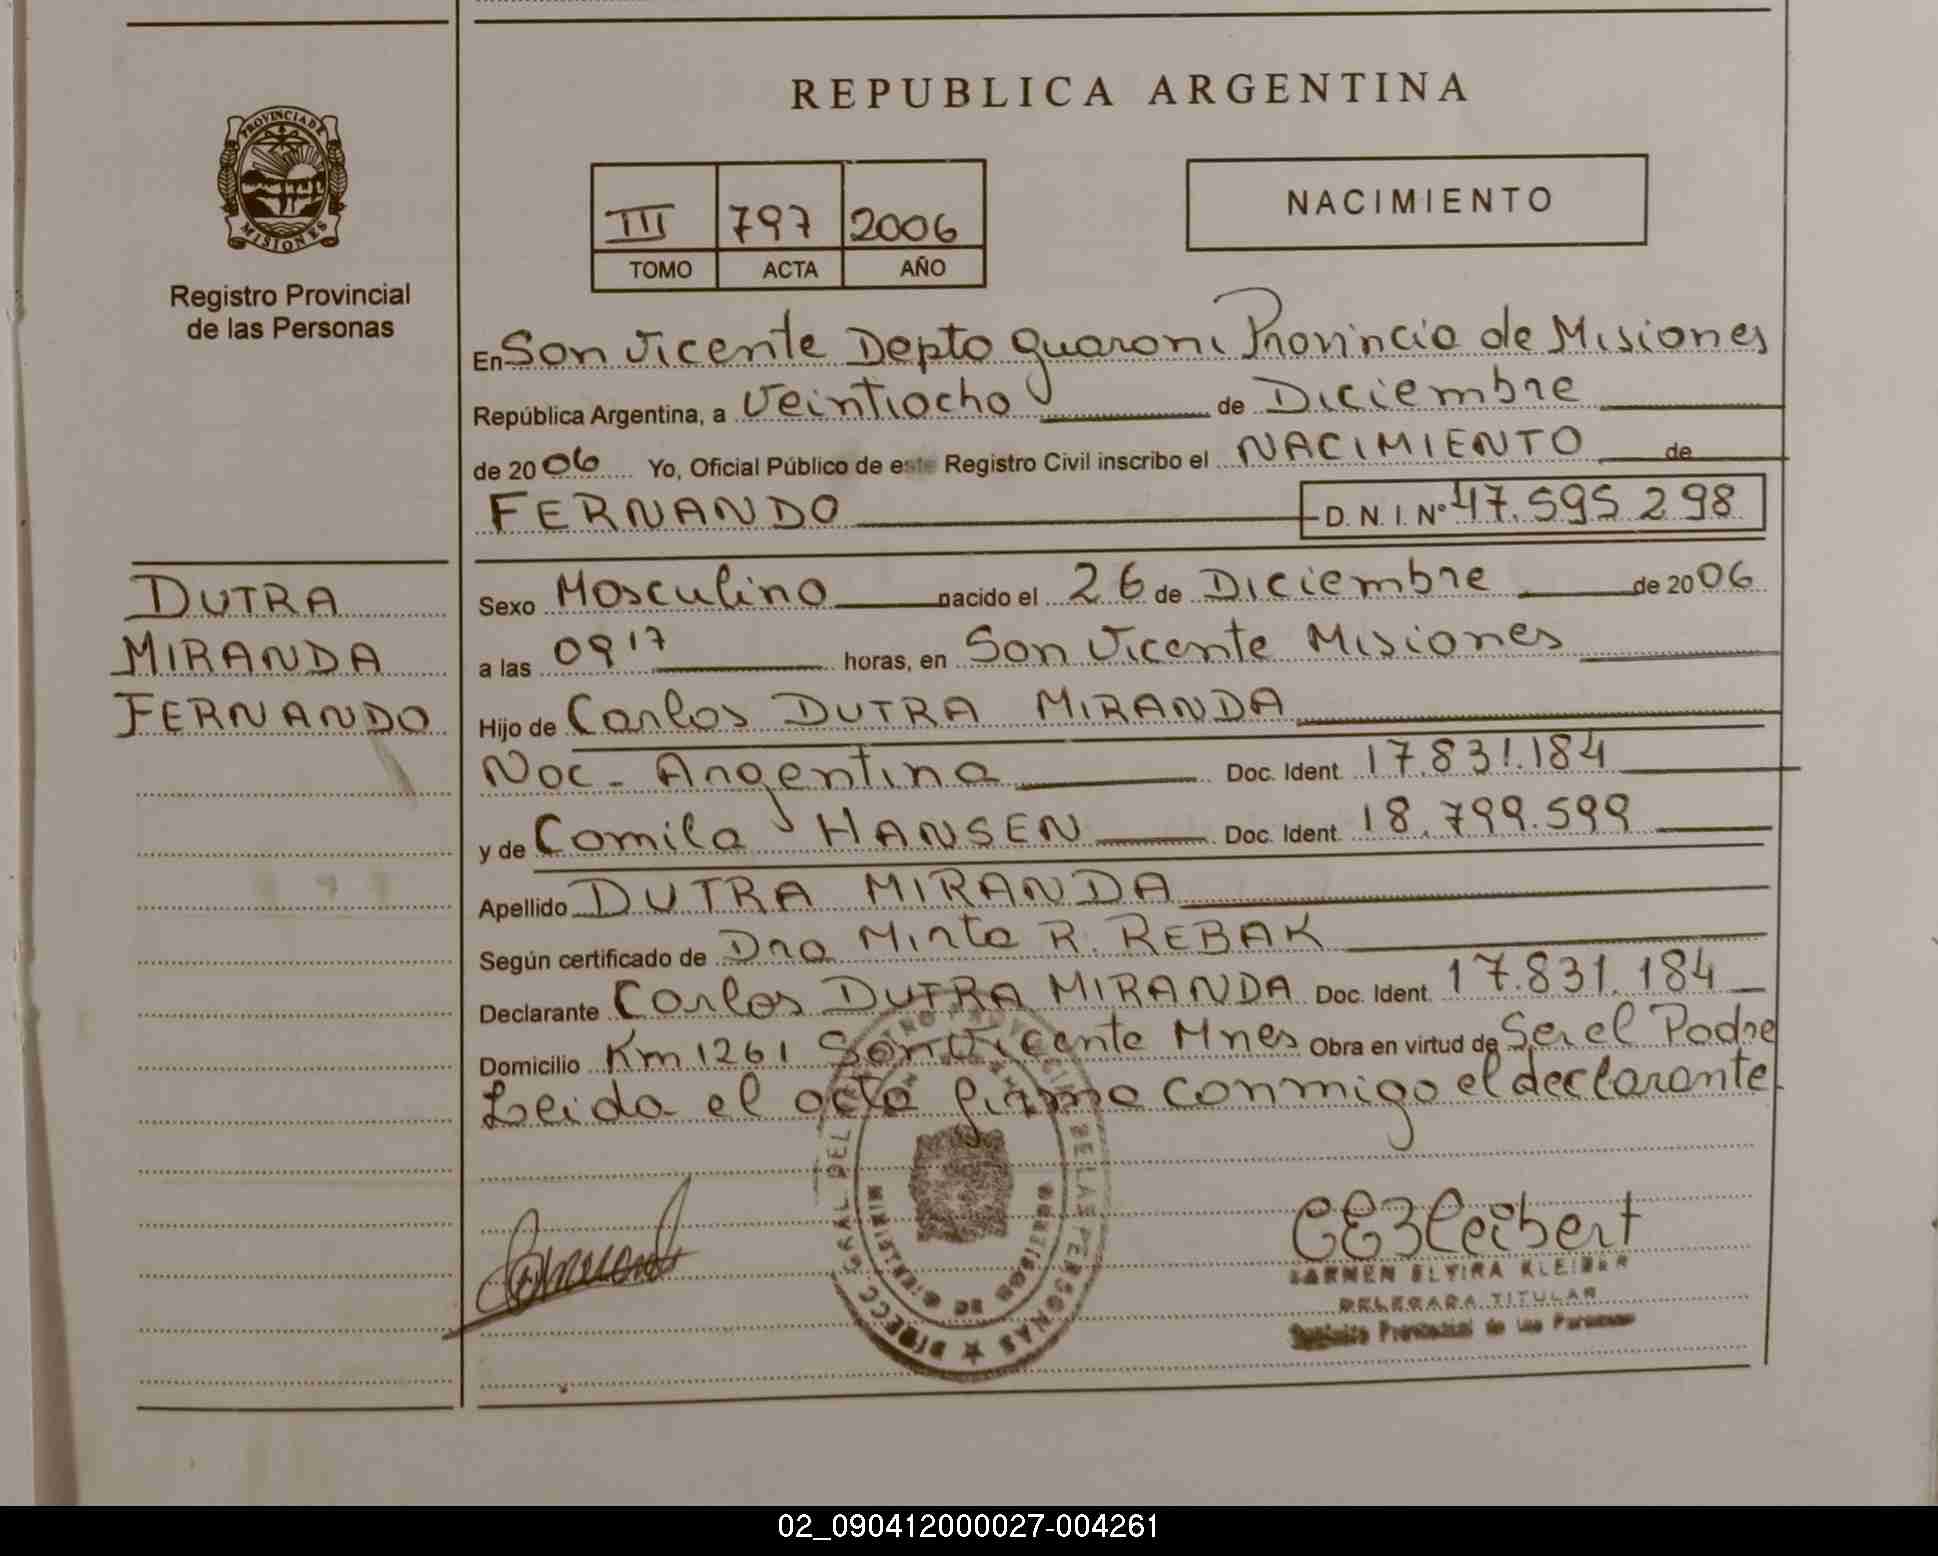 REPUBLICA ARGENTINA
PROVINCIA DE
MISIONES
Registro Provincial
de las Personas
III 797 2006
TOMO ACTA AÑO
NACIMIENTO
En San Vicente Depto Guarani Provincia de Misiones
República Argentina, a Veintiocho de Diciembre
de 2006 Yo, Oficial Público de este Registro Civil inscribo el NACIMIENTO de
FERNANDO D.N.I. Nº 47.595.298
DUTRA
MIRANDA
FERNANDO
Sexo Masculino nacido el 26 de Diciembre de 2006
a las 09 17 horas, en San Vicente Misiones
Hijo de Carlos DUTRA MIRANDA
Nac- Argentina Doc. Ident. 17.831.184
y de Camila HANSEN Doc. Ident. 18.799.599
Apellido DUTRA MIRANDA
Según certificado de Dra Mirta R. REBAK
Declarante Carlos DUTRA MIRANDA Doc. Ident. 17.831.184
Domicilio Km 1261 San Vicente Mnes Obra en virtud de Ser el Padre
Leida el acta firma conmigo el declarante
CARMEN ELVIRA KLEIBER
DELEGADA TITULAR
Provincial de las Personas
02_090412000027-004261